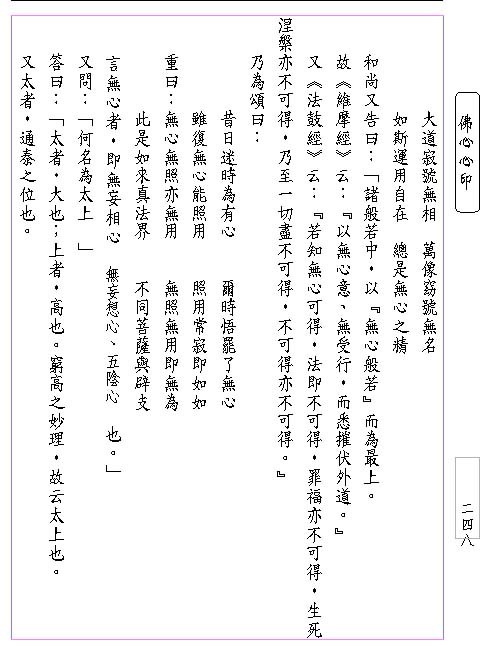 佛心心印
二四八
大道寂號無相　萬像窈號無名
如斯運用自在　總是無心之精
和尚又告曰：「諸般若中，以『無心般若』而為最上。
故《維摩經》云：『以無心意、無受行，而悉摧伏外道。』
又《法鼓經》云：『若知無心可得，法即不可得，罪福亦不可得，生死
涅槃亦不可得，乃至一切盡不可得，不可得亦不可得。』
乃為頌曰：
昔日迷時為有心　爾時悟罷了無心
雖復無心能照用　照用常寂即如如
重曰：無心無照亦無用　無照無用即無為
此是如來真法界　不同菩薩與辟支
言無心者，即無妄相心　無妄想心、五陰心　也。」
又問：「何名為太上　」
答曰：「太者，大也；上者，高也。窮高之妙理，故云太上也。
又太者，通泰之位也。